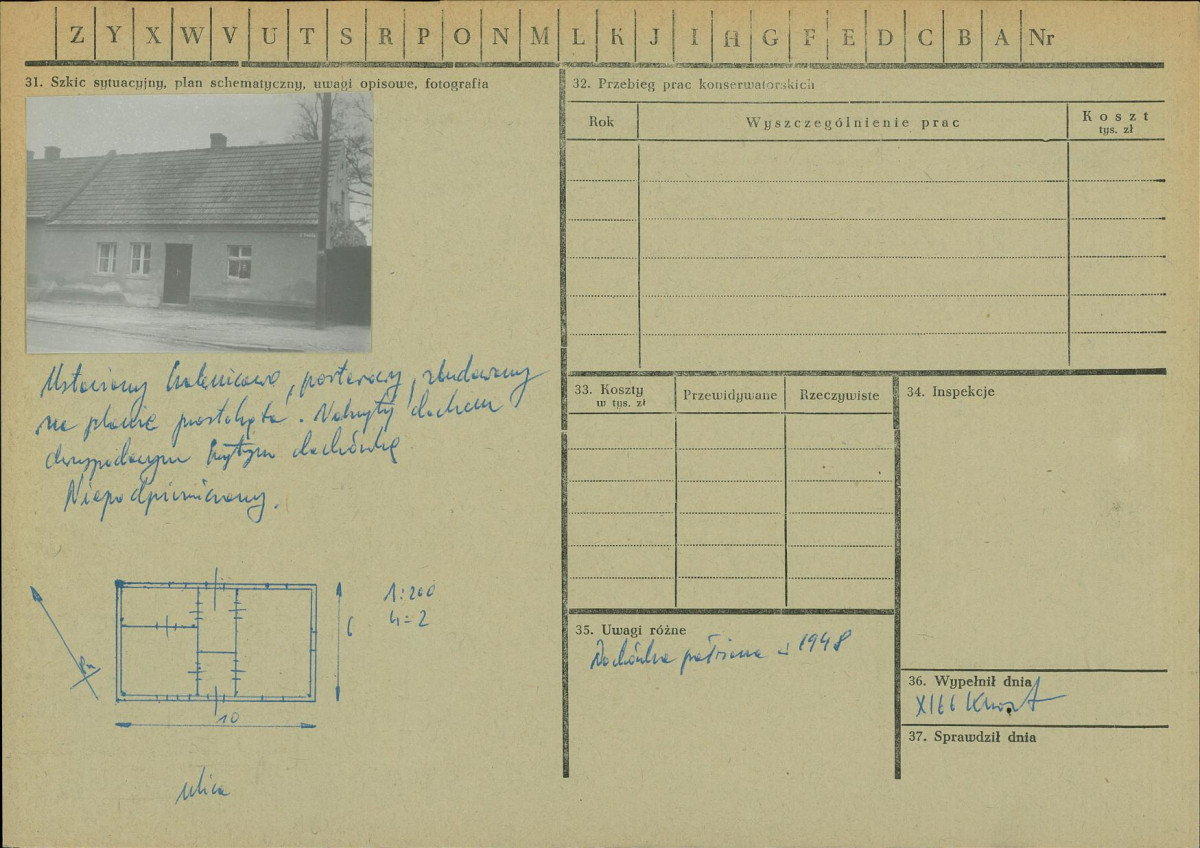 Z Y X W V U T S R P O N M L K J I H G F E D C B A Nr
31. Szkic sytuacyjny, plan schematyczny, uwagi opisowe, fotografia
Ustawiony kalenicowo, parterowy, zbudowany
na planie prostokąta. Nakryty dachem
dwuspadowym krytym dachówką
Niepodpiwniczony.
1:200
h=2
6
10
ulica
32. Przebieg prac konserwatorskich
Rok
Wyszczególnienie prac
Koszt
tys. zł
33. Koszty
w tys. zł
Przewidywane
Rzeczywiste
34. Inspekcje
35. Uwagi różne
Dachówka 1948
36. Wypełnił dnia
XI66
37. Sprawdził dnia